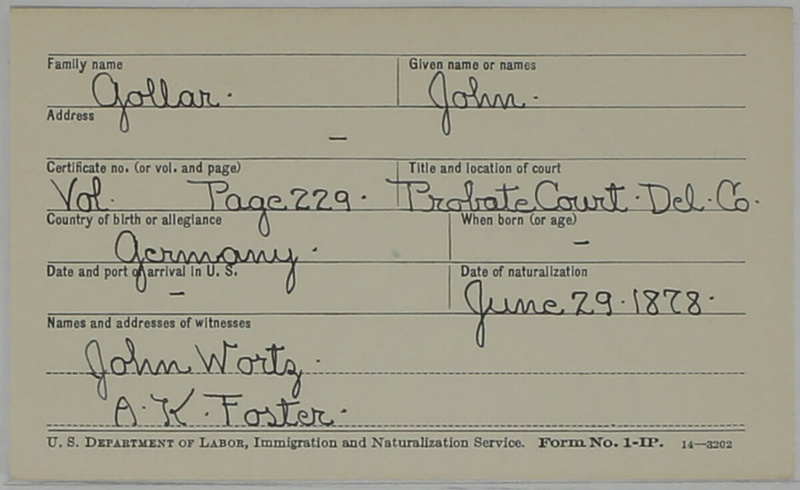 Family name Given name or names
Gollar. John.
Address
–
Certificate no. (or vol. and page) Title and location of court
Vol. Page 229. Probate Court. Del. Co.
Country of birth or allegiance When born (or age)
Germany. –
Date and port of arrival in U. S. Date of naturalization
– June 29. 1878.
Names and addresses of witnesses
John Wortz.
A. K. Foster.
U. S. DEPARTMENT OF LABOR, Immigration and Naturalization Service. Form No. 1-IP. 14—3202